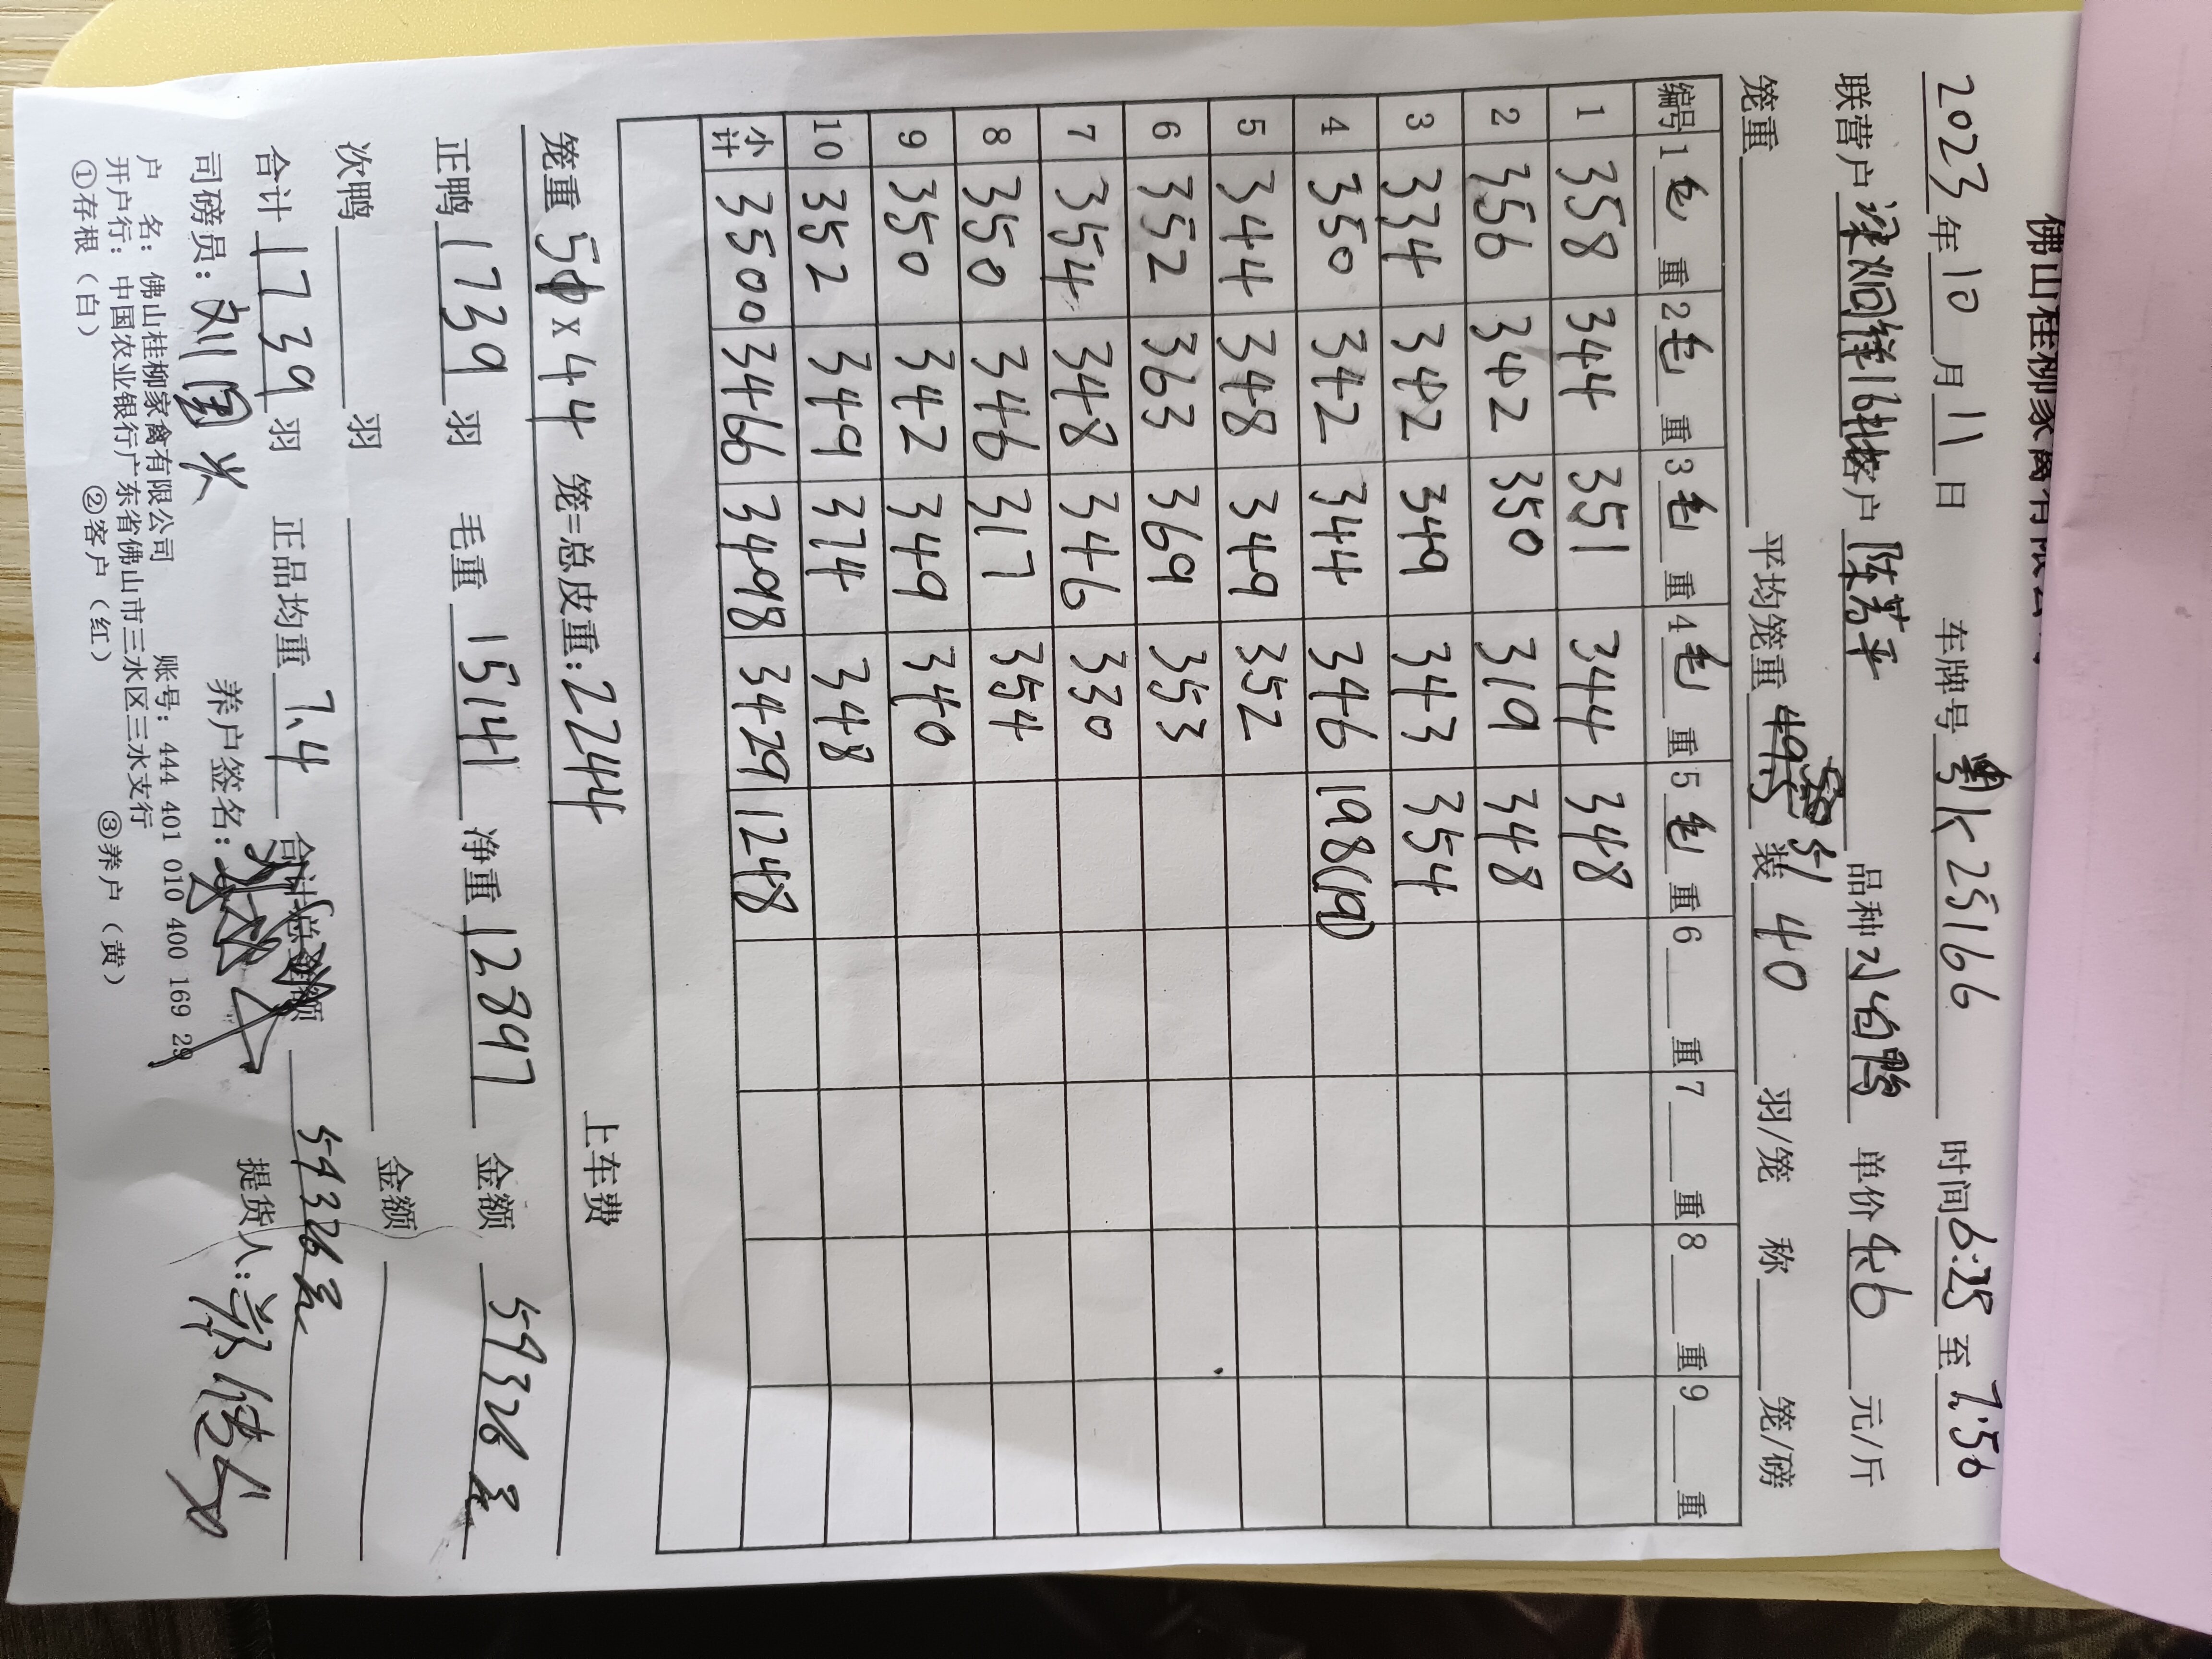 佛山桂柳家禽有限公
2023年10月11日 车牌号粤K25166 时间6:25至7:50
联营户梁烟锋16批 客户陈芬平 品种小白鸭 单价4.6元/斤
笼重 平均笼重51 装40羽/笼 称 笼/磅
编号 1毛重 2毛重 3毛重 4毛重 5毛重 6重 7重 8重 9重
1 358 344 351 344 348
2 356 342 350 319 348
3 334 342 349 343 354
4 350 342 344 346 198(19)
5 344 348 349 352
6 352 363 369 353
7 354 348 346 330
8 350 346 317 354
9 350 342 349 340
10 352 349 374 348
小计 3500 3466 3498 3429 1248
笼重51x44笼=总皮重:2244 上车费
正鸭1739羽 毛重15141 净重12897 金额59326元
次鸭 羽 金额
合计1739羽 正品均重7.4 合计总金额59326元
司磅员:刘国兴 养户签名: 提货人:
户 名:佛山桂柳家禽有限公司 账号:444 401 010 400 169 29
开户行:中国农业银行广东省佛山市三水区三水支行
①存根(白) ②客户(红) ③养户(黄)